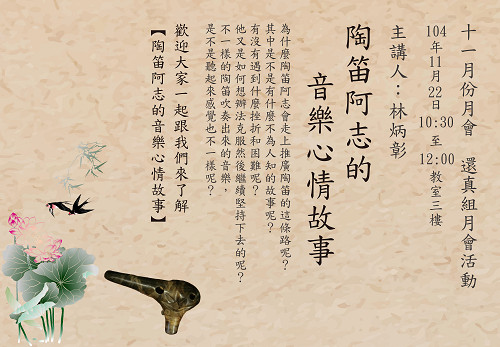 十一月份月會　還真組月會活動
104年11月22日 10:30 至 12:00 教室三樓
主講人：林炳彰
陶笛阿志的
音樂心情故事
為什麼陶笛阿志會走上推廣陶笛的這條路呢？
其中是不是有什麼不為人知的故事呢？
有沒有遇到什麼挫折和困難呢？
他又是如何想辦法克服然後繼續堅持下去的呢？
不一樣的陶笛吹奏出來的音樂，
是不是聽起來感覺也不一樣呢？
歡迎大家一起跟我們來了解
【陶笛阿志的音樂心情故事】